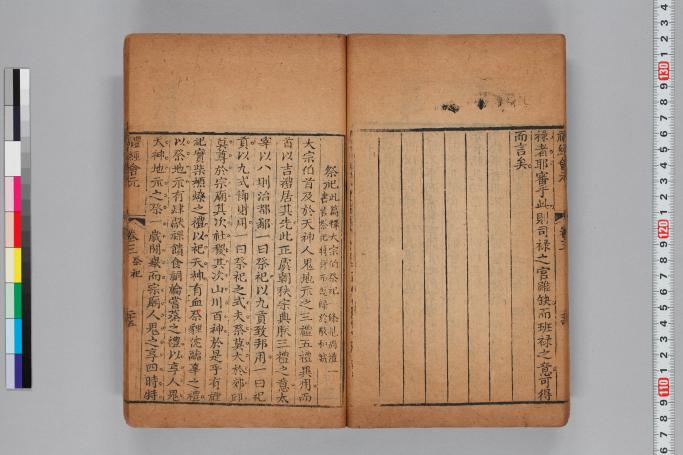 祿者耶審乎此則司祿之官雖缺而班祿之意可得
而言矣
祭祀
大宗伯首及於天神人鬼地示之三禮五禮異用而
首以吉禮居其先此正虞朝秩宗典朕三禮之意太
宰以八則治都鄙一曰祭祀以九貢致邦用一曰祀
貢以九式御財用一曰祭祀之式夫祭莫大於郊邱
莫尊於宗廟其次社稷其次山川百神於是乎有禋
祀實柴槱燎之禮以祀天神有血祭貍沈疈辜之禮
以祭地示有肆獻祼饋食祠禴嘗蒸之禮以享人鬼
天神地示之祭一歲閒舉而宗廟人鬼之享四時特
禮經會元
卷三
祭祀